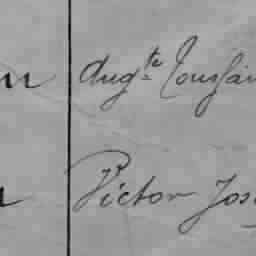 Aug.te Toussain
Victor Jos